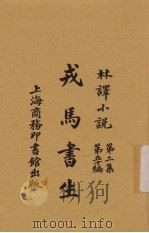 林譯小說
第二集
第五十編
戎馬書生
上海商務印書館出版